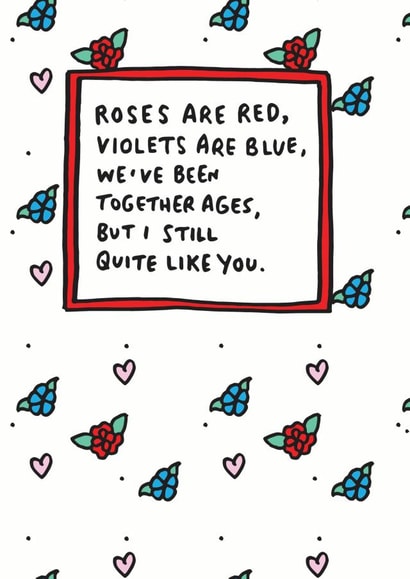 ROSES ARE RED,
VIOLETS ARE BLUE,
WE'VE BEEN
TOGETHER AGES,
BUT I STILL
QUITE LIKE YOU.